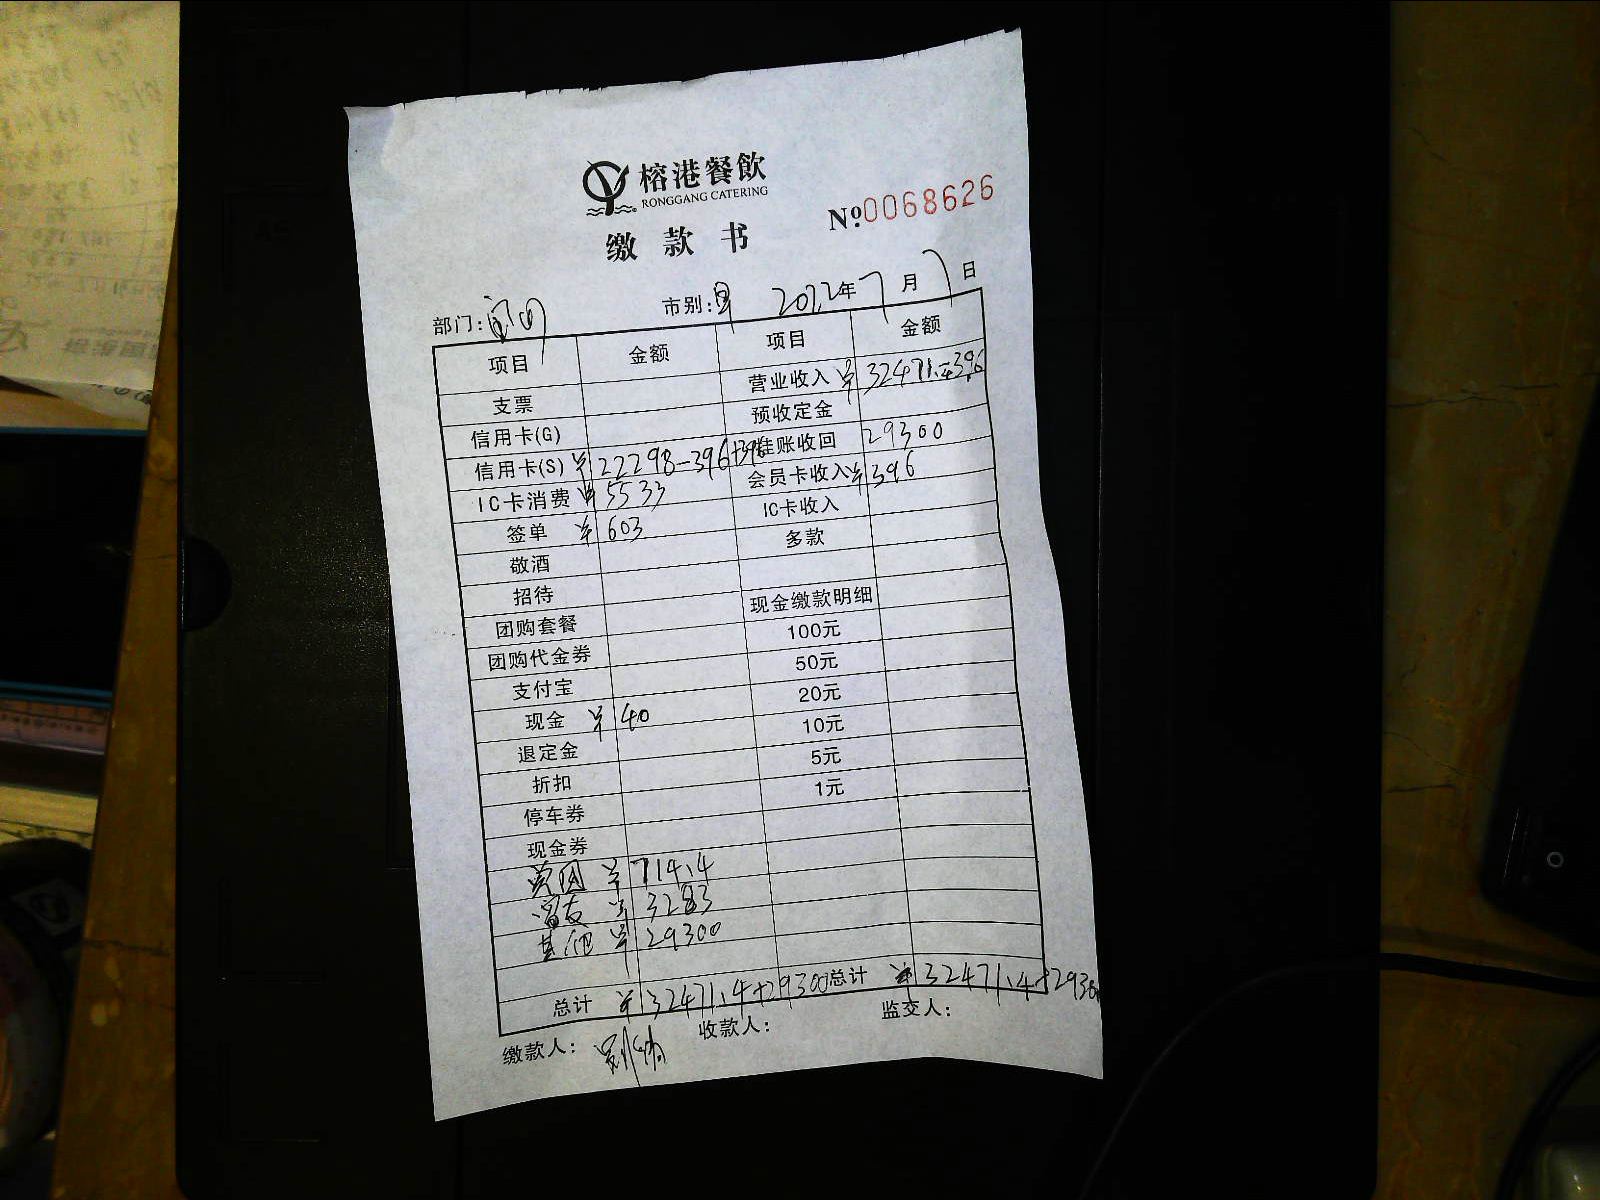 榕港餐飲
RONGGANG CATERING
№0068626
缴款书
部门: 市别: 2022年7月7日
项目 金额 项目 金额
支票 营业收入 ¥32471.4-396
信用卡(G) 预收定金
信用卡(S) ¥22298-396+396 挂账收回 29300
IC卡消费 ¥5533 会员卡收入 ¥396
签单 ¥603 IC卡收入
敬酒 多款
招待
团购套餐 现金缴款明细
团购代金券 100元
支付宝 50元
现金 ¥40 20元
退定金 10元
折扣 5元
停车券 1元
现金券
美团 ¥714.4
¥3283
其他 ¥29300
总计 ¥32471.4+29300 总计 ¥32471.4+29300
缴款人: 收款人: 监交人: